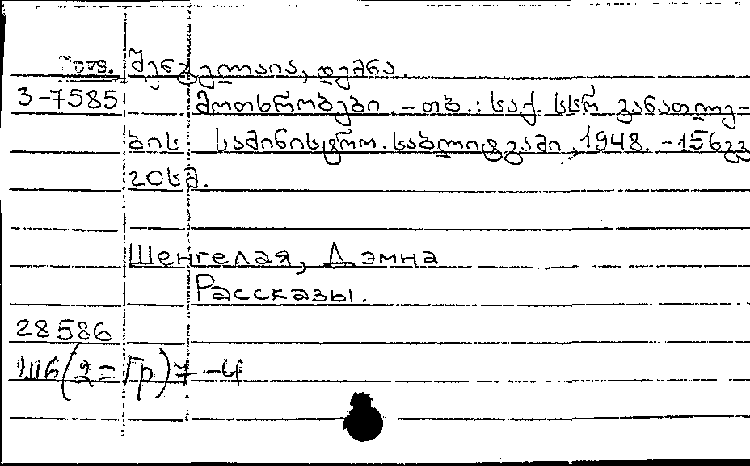 შენგელაია, დემნა.
3-7585 მოთხრობები. - თბ.: საქ. სსრ განათლე-
ბის სამინისტრო. საბლიტგამი, 1948. - 156გვ
20სმ.
Шенгелая, Дэмна
Рассказы.
28586
(2=Гр)7-4